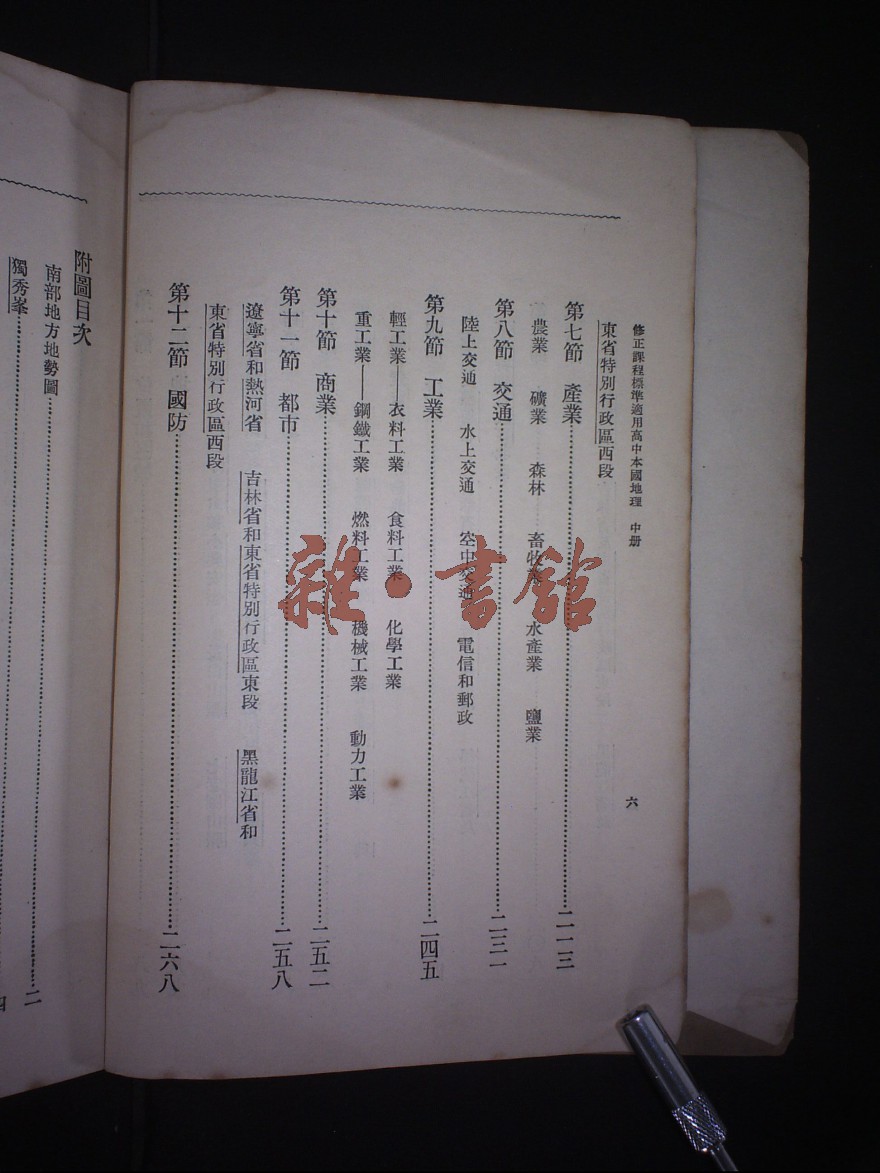 修正課程標準適用高中本國地理 中册 六
東省特別行政區西段
第七節 產業……二一三
農業 礦業 森林 畜牧業 水產業 鹽業
第八節 交通……二三一
陸上交通 水上交通 空中交通 電信和郵政
第九節 工業……二四五
輕工業——衣料工業 食料工業 化學工業
重工業——鋼鐵工業 燃料工業 機械工業 動力工業
第十節 商業……二五二
第十一節 都市……二五八
遼寧省和熱河省 吉林省和東省特別行政區東段 黑龍江省和
東省特別行政區西段
第十二節 國防……二六八
附圖目次
南部地方地勢圖……二
獨秀峯……四
雜·書館